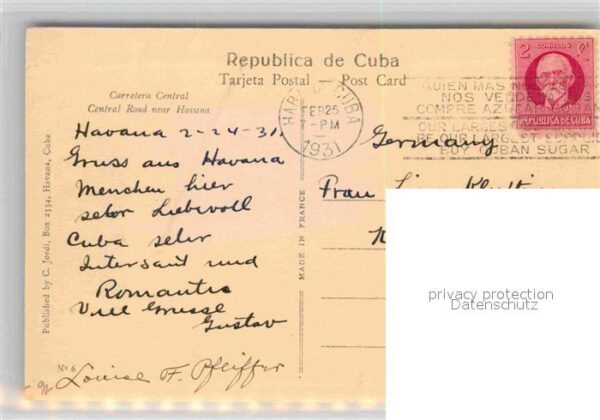 Republica de Cuba
Tarjeta Postal — Post Card
Carretera Central
Central Road near Havana
Havana 2-24-31.
Gruss aus Havana
Menchen hier
sehr Liebevoll
Cuba sehr
Intersant und
Romantis
Viel Grusse
Gustav
Louise F. Pfeiffer
Nº 6
Published by C. Jordi, Box 2334, Havana, Cuba
MADE IN FRANCE
HABANA, CUBA
FEB 25
7-PM
1931
QUIEN MAS
NOS VENDE
COMPRE
OUR LARGEST
BE OUR LARGEST
BUY CUBAN SUGAR
2 CORREOS
REPUBLICA DE CUBA
Germany
Frau
privacy protection
Datenschutz